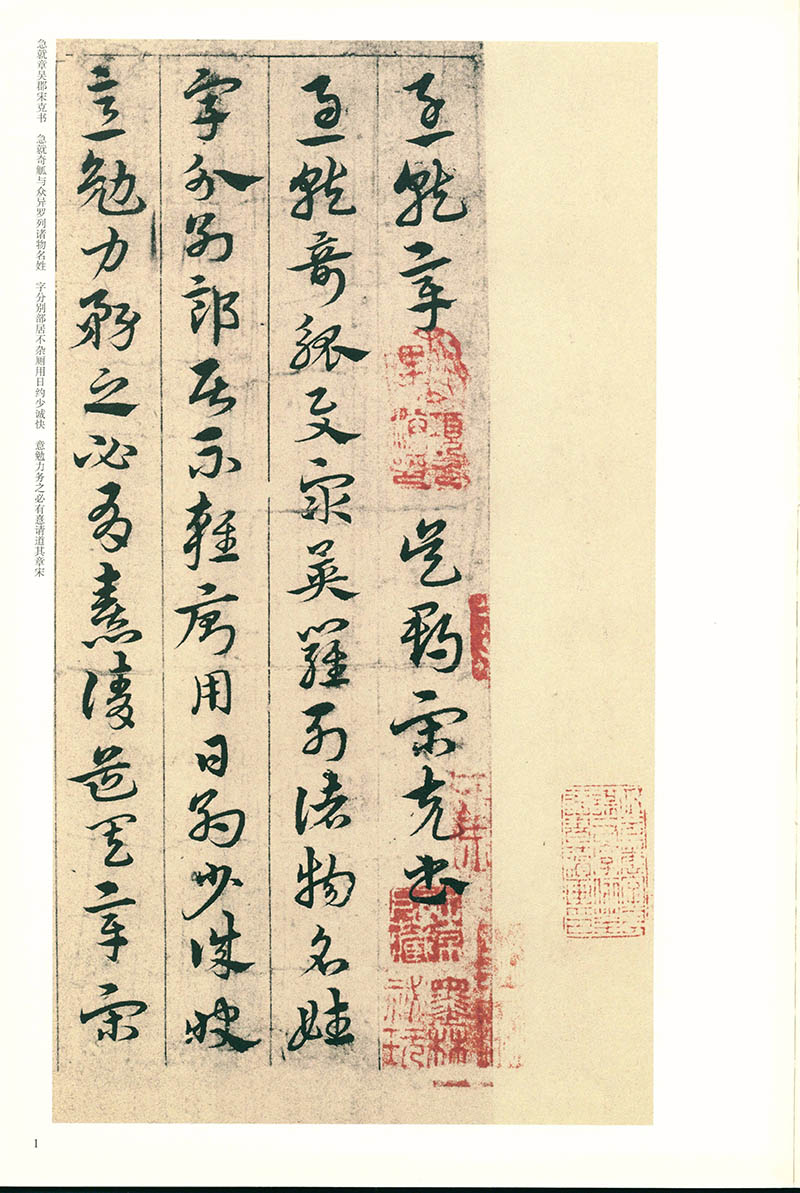 急就章 吳郡宋克書
急就奇觚與衆異羅列諸物名姓
字分別部居不雜廁用日約少誠快
意勉力務之必有憙請道其章宋
墨林祕玩
急就章吴郡宋克书 急就奇觚与众异罗列诸物名姓 字分别部居不杂厕用日约少诚快 意勉力务之必有憙请道其章宋
1